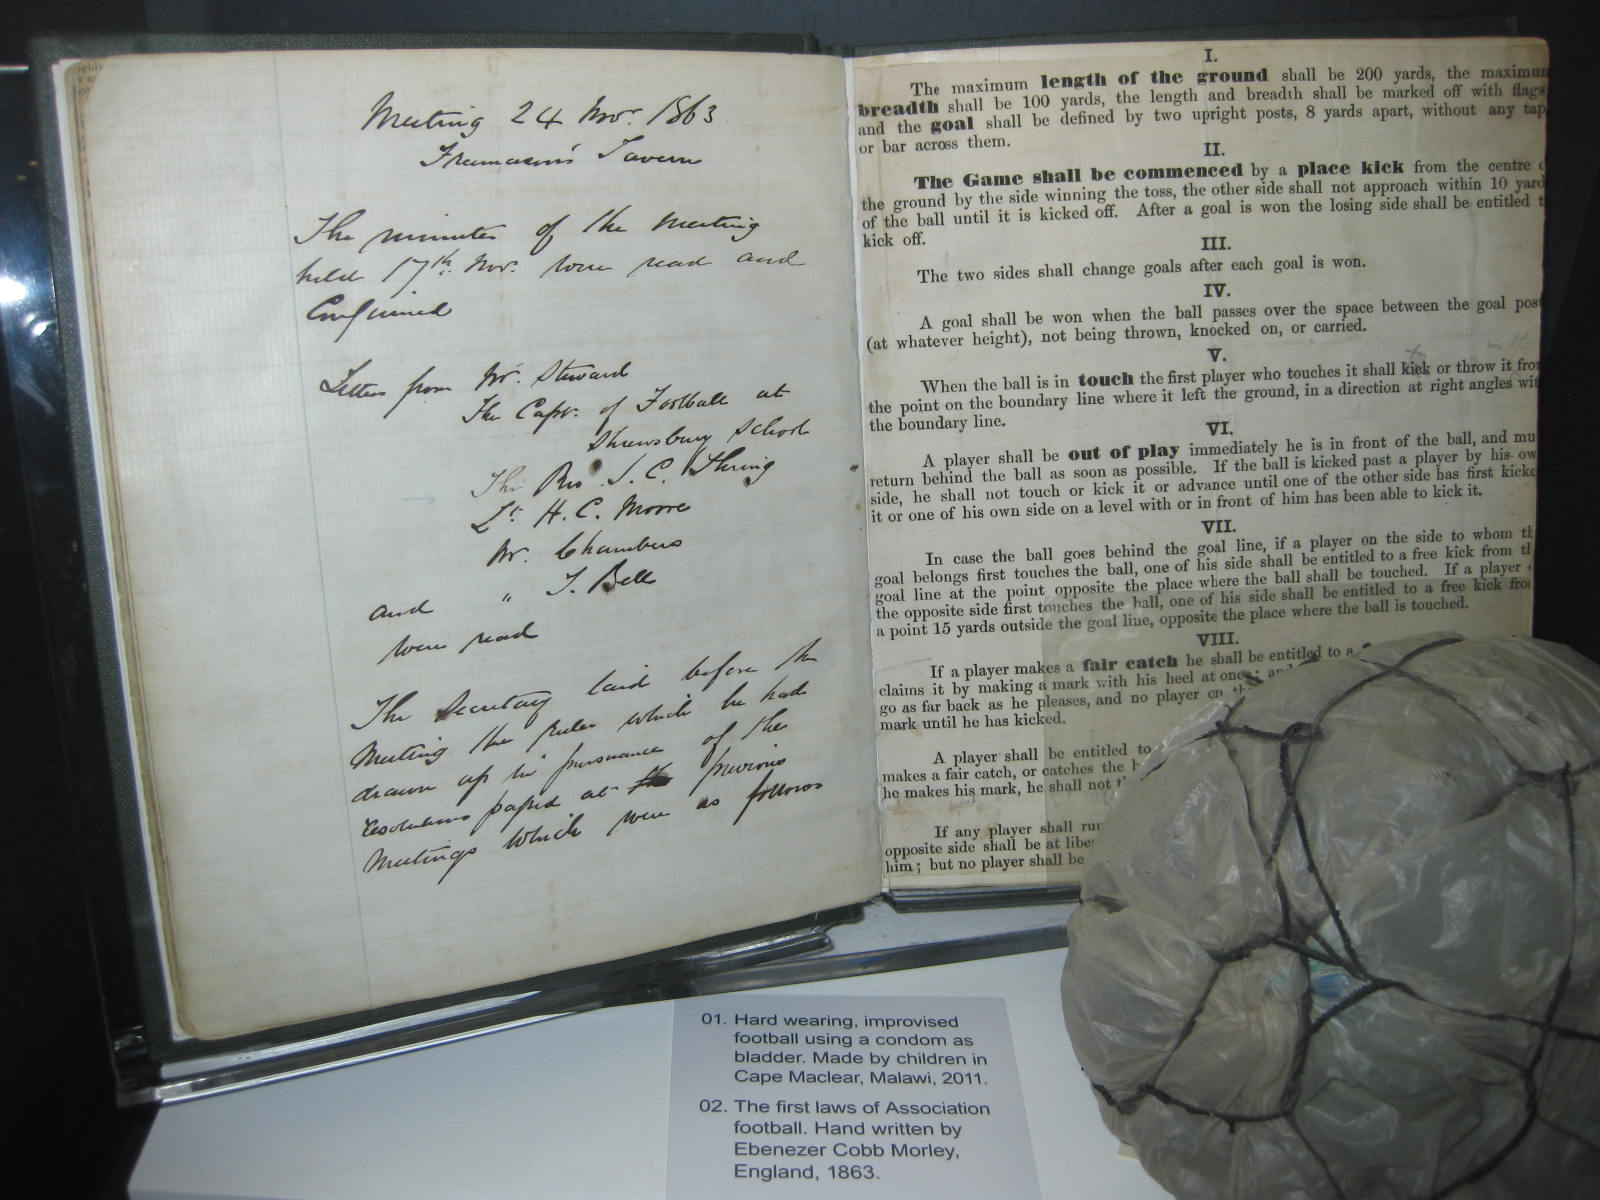 Meeting 24 Nov. 1863
Freemason's Tavern
The minutes of the Meeting
held 17th. Nov. were read and
Confirmed
Letters from Mr. Steward
The Capt. of Football at
Shrewsbury School
The Rev. J. C. Thring
Lt. H. C. Moore
Mr. Chambers
and " J. Bell
were read
The Secretary laid before the
Meeting the rules which he had
drawn up in pursuance of the
resolutions passed at previous
Meetings which were as follows
I.
The maximum length of the ground shall be 200 yards, the maximum
breadth shall be 100 yards, the length and breadth shall be marked off with flags
and the goal shall be defined by two upright posts, 8 yards apart, without any tap
or bar across them.
II.
The Game shall be commenced by a place kick from the centre
the ground by the side winning the toss, the other side shall not approach within 10 yard
of the ball until it is kicked off. After a goal is won the losing side shall be entitled t
kick off.
III.
The two sides shall change goals after each goal is won.
IV.
A goal shall be won when the ball passes over the space between the goal post
(at whatever height), not being thrown, knocked on, or carried.
V.
When the ball is in touch the first player who touches it shall kick or throw it from
the point on the boundary line where it left the ground, in a direction at right angles wit
the boundary line.
VI.
A player shall be out of play immediately he is in front of the ball, and mu
return behind the ball as soon as possible. If the ball is kicked past a player by his ow
side, he shall not touch or kick it or advance until one of the other side has first kicke
it or one of his own side on a level with or in front of him has been able to kick it.
VII.
In case the ball goes behind the goal line, if a player on the side to whom th
goal belongs first touches the ball, one of his side shall be entitled to a free kick from th
goal line at the point opposite the place where the ball shall be touched. If a player
the opposite side first touches the ball, one of his side shall be entitled to a free kick from
a point 15 yards outside the goal line, opposite the place where the ball is touched.
VIII.
If a player makes a fair catch he shall be entitled to a
claims it by making a mark with his heel at once; and
go as far back as he pleases, and no player on
mark until he has kicked.
A player shall be entitled to
makes a fair catch, or catches the b
he makes his mark, he shall not t
If any player shall run
opposite side shall be at liber
him; but no player shall be
01. Hard wearing, improvised
football using a condom as
bladder. Made by children in
Cape Maclear, Malawi, 2011.
02. The first laws of Association
football. Hand written by
Ebenezer Cobb Morley,
England, 1863.